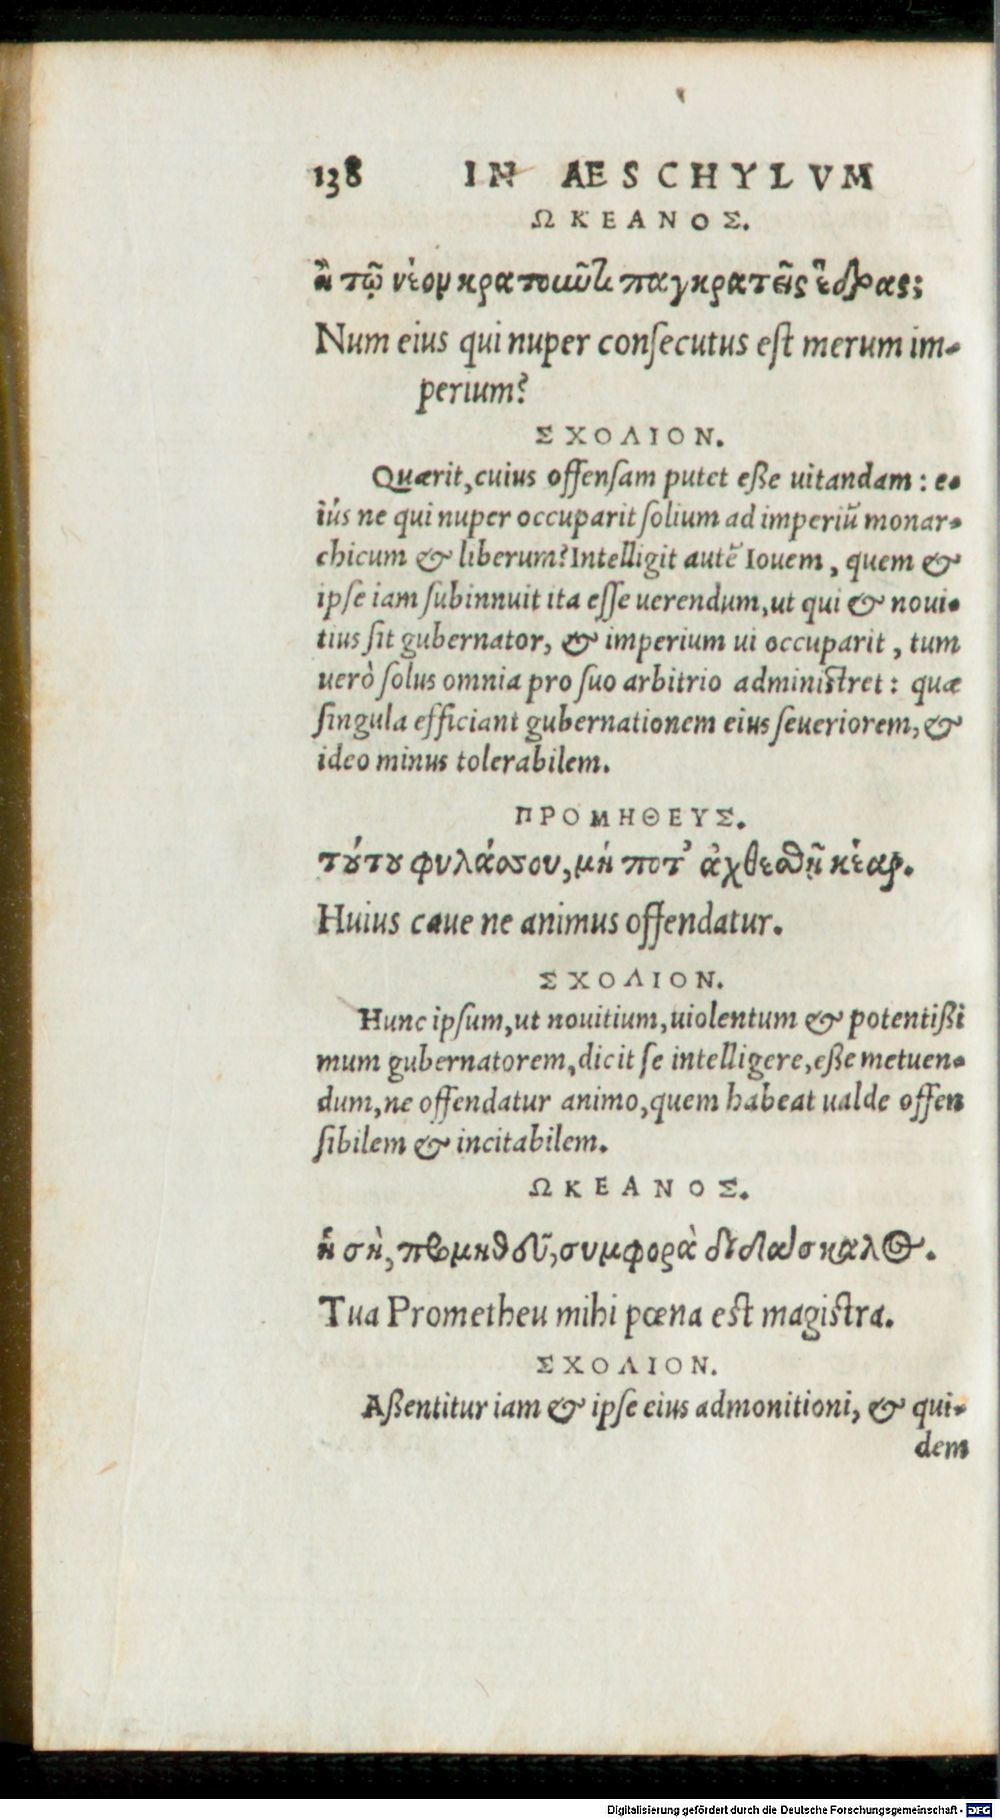 138 IN AESCHYLVM
ΩΚΕΑΝΟΣ.
ἢ τῷ νέον κρατοιῶτι παγκρατεῖς ἕδρας;
Num eius qui nuper consecutus est merum im-
perium?
ΣΧΟΛΙΟΝ.
Quærit, cuius offensam putet eße uitandam: e-
iús ne qui nuper occuparit solium ad imperiũ monar-
chicum & liberum? Intelligit autẽ Iouem, quem &
ipse iam subinnuit ita esse uerendum, ut qui & noui-
tius sit gubernator, & imperium ui occuparit, tum
uerò solus omnia pro suo arbitrio administret: quæ
singula efficiant gubernationem eius seueriorem, &
ideo minus tolerabilem.
ΠΡΟΜΗΘΕΥΣ.
τύτου φυλάσσου, μή ποτ' ἀχθεσθῇ κέαρ.
Huius caue ne animus offendatur.
ΣΧΟΛΙΟΝ.
Hunc ipsum, ut nouitium, uiolentum & potentißi
mum gubernatorem, dicit se intelligere, eße metuen-
dum, ne offendatur animo, quem habeat ualde offen
sibilem & incitabilem.
ΩΚΕΑΝΟΣ.
ἡ σὴ, προμηθεῦ, συμφορὰ διδάσκαλος.
Tua Prometheu mihi pœna est magistra.
ΣΧΟΛΙΟΝ.
Aßentitur iam & ipse eius admonitioni, & qui-
dem
Digitalisierung gefördert durch die Deutsche Forschungsgemeinschaft - DFG